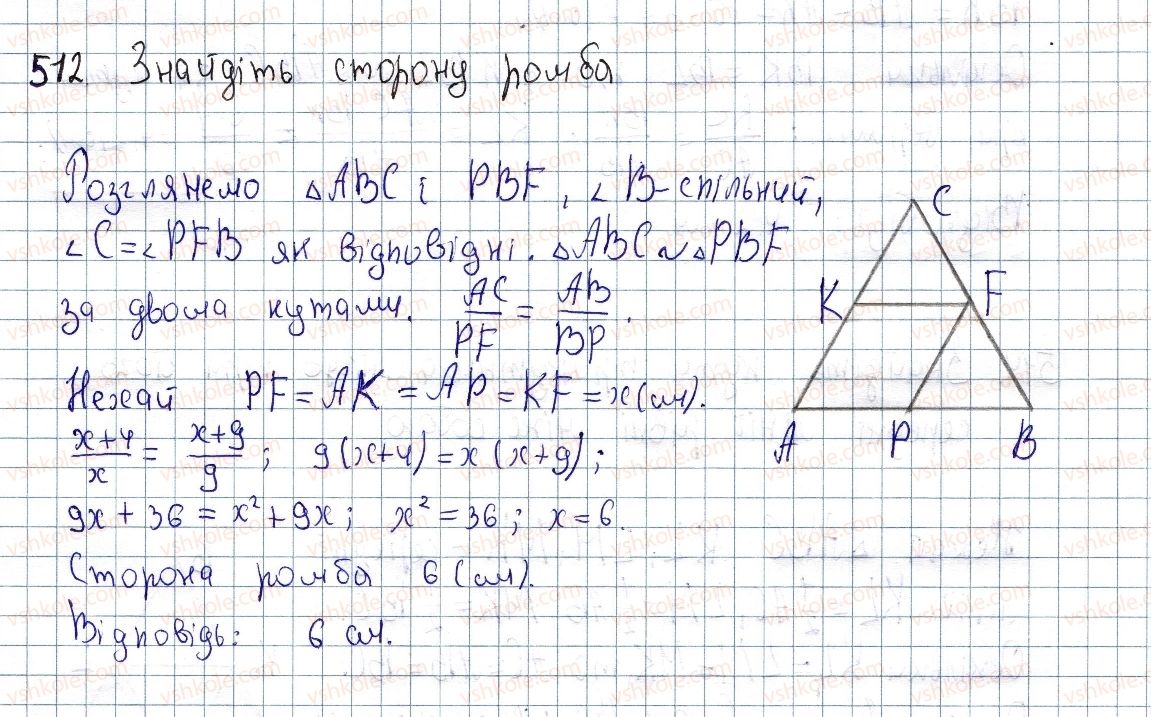 512 Знайдіть сторону ромба
Розглянемо △ABC і PBF, ∠B-спільний,
∠C=∠PFB як відповідні. △ABC∼△PBF
за двома кутами. AC/PF = AB/BP.
Нехай PF = AK = AP = KF = x (см).
(x+4)/x = (x+9)/9; 9(x+4) = x(x+9);
9x + 36 = x² + 9x; x² = 36; x = 6.
Сторона ромба 6 (см).
Відповідь: 6 см.
C
K
F
A
P
B
vshkole.com